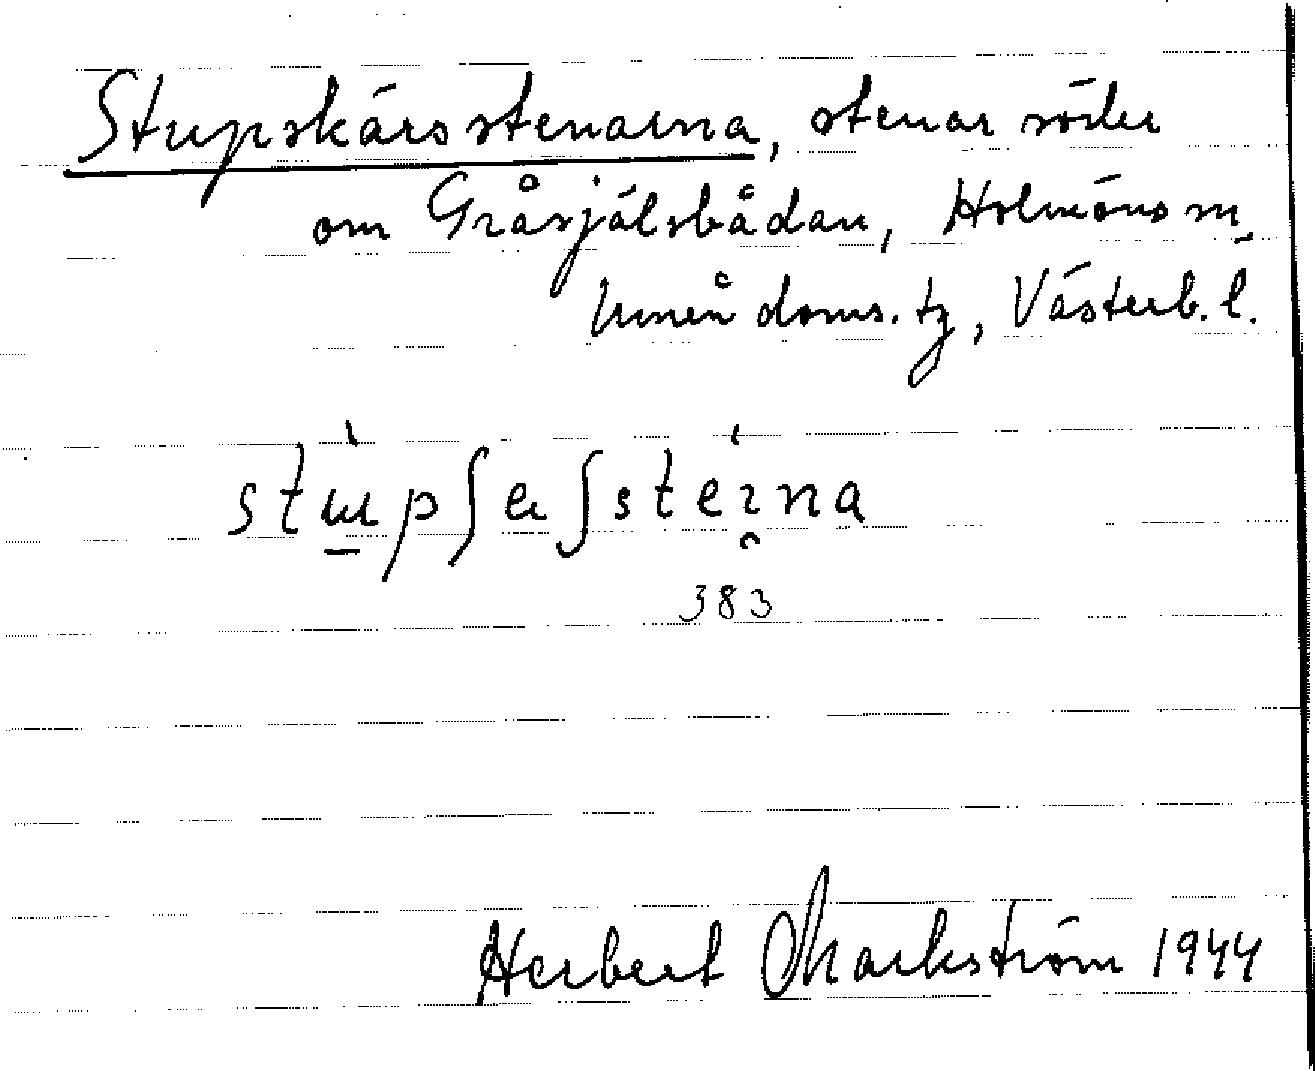 Stupskärsstenarna, stenar söder
om Gråsjälsbådan, Holmöns sn,
Umeå doms. tg, Västerb. l.
383
Herbert Markström 1944